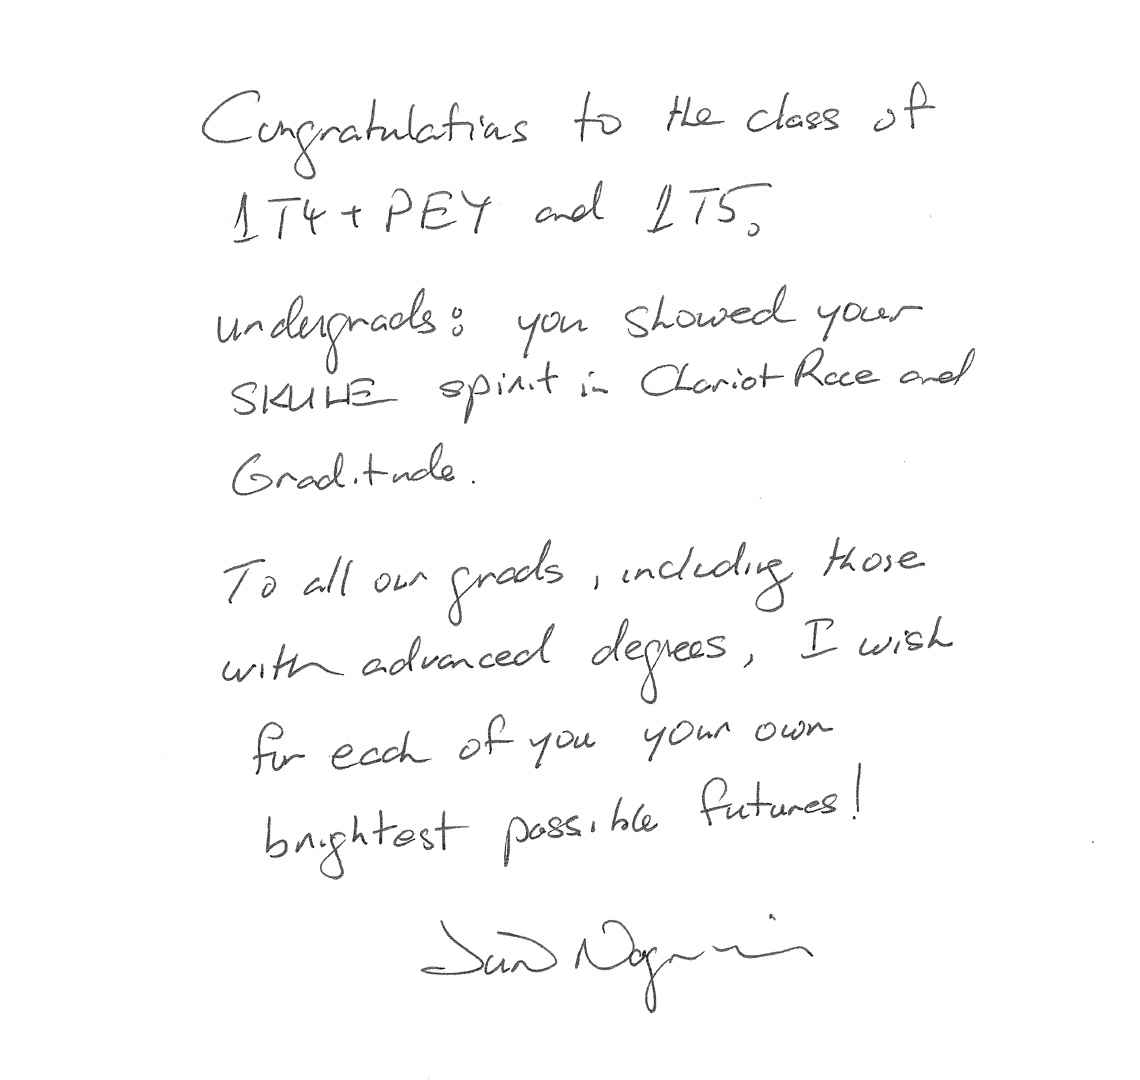 Congratulations to the class of
1T4 + PEY and 1T5.
undergrads: you showed your
SKULE spirit in Chariot Race and
Graditude.
To all our grads, including those
with advanced degrees, I wish
for each of you your own
brightest possible futures!